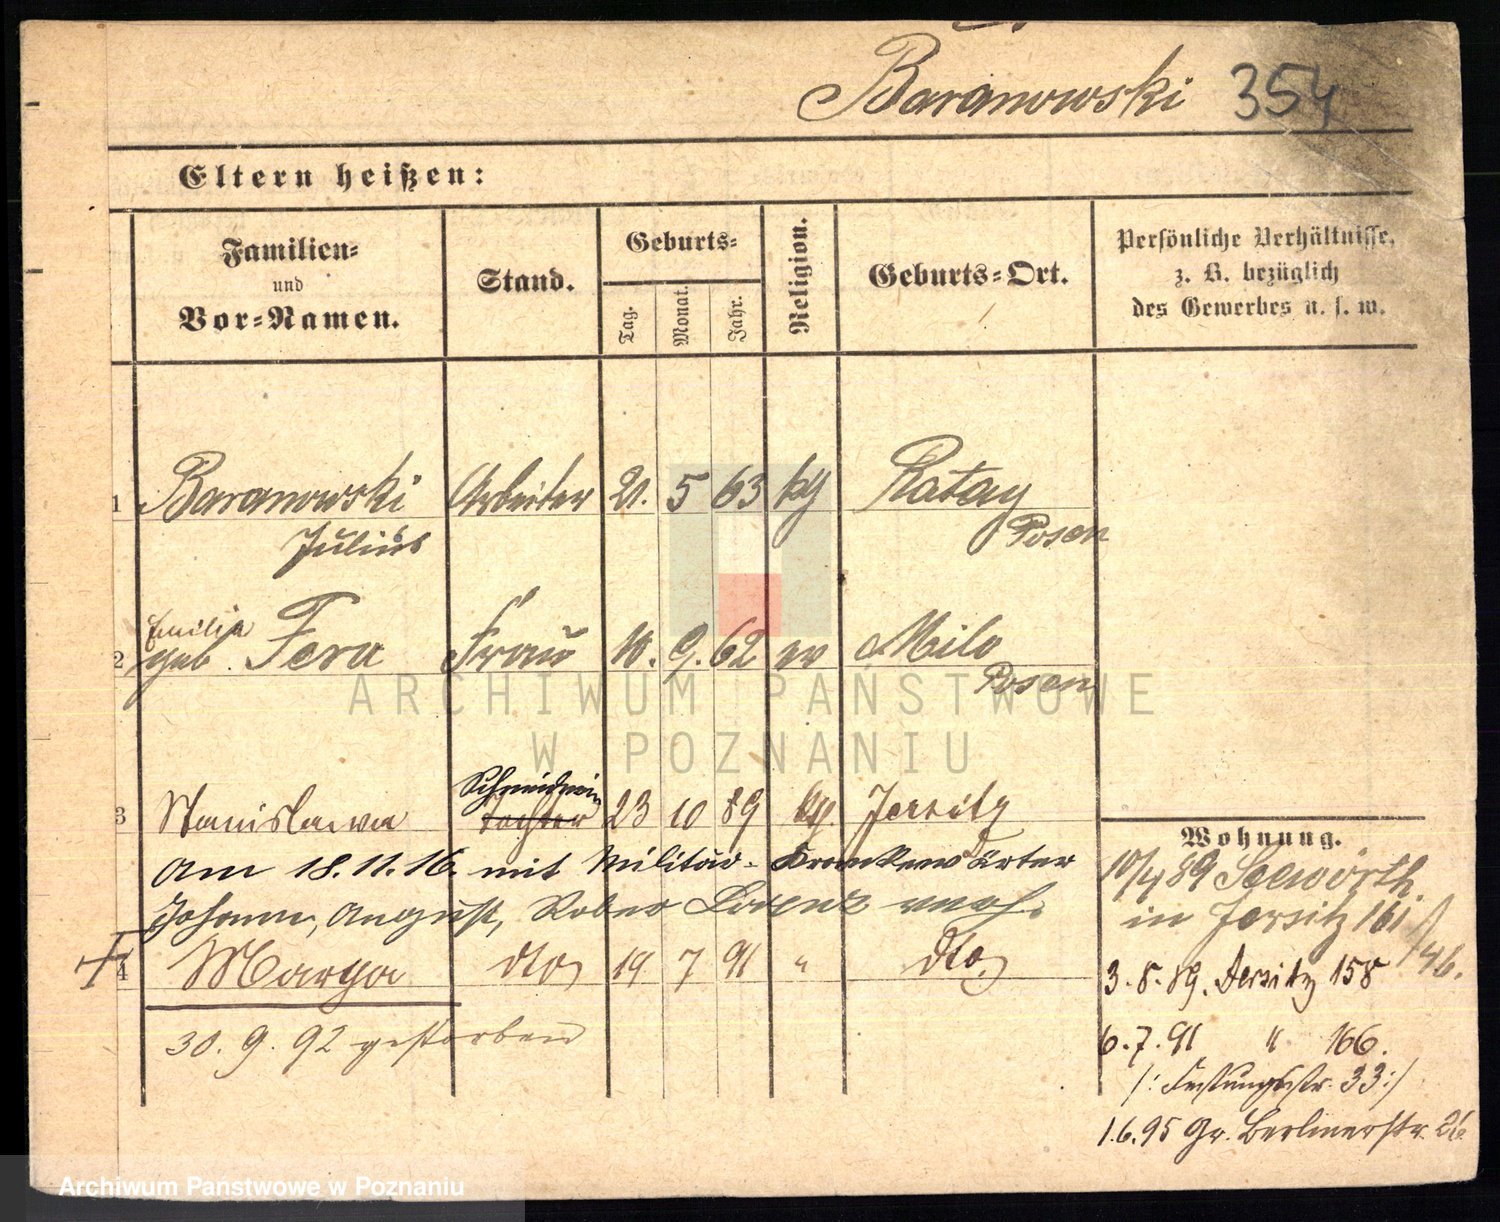 Baranowski 354
Eltern heißen:
Familien=
und
Vor=Namen.
Stand.
Geburts=
Tag.
Monat.
Jahr.
Religion.
Geburts=Ort.
Persönliche Verhältnisse,
z. B. bezüglich
des Gewerbes u. s. w.
1 Baranowski Arbeiter 21. 5 63 kg Ratay
Julius Posen
Emilie
2 geb. Fera Frau 10. 9. 62 ev Milo
Posen
Schneiderin
3 Stanislawa Tochter 23 10 89 kg. Jersitz
Am 18.11.16. mit Militär-Krankenwärter
Johann, August, Lorenz verh.
4 Marya dto 19 7 91 " dto
30. 9. 92 gestorben
Wohnung.
10/4 89 Seewörth
in Jersitz 161
/46.
3.8.89. Jersitz 158
6.7.91 " 166.
/: Festungsstr. 33:/
1.6.95 Gr. Berlinerstr. 26
ARCHIWUM PAŃSTWOWE
W POZNANIU
Archiwum Państwowe w Poznaniu